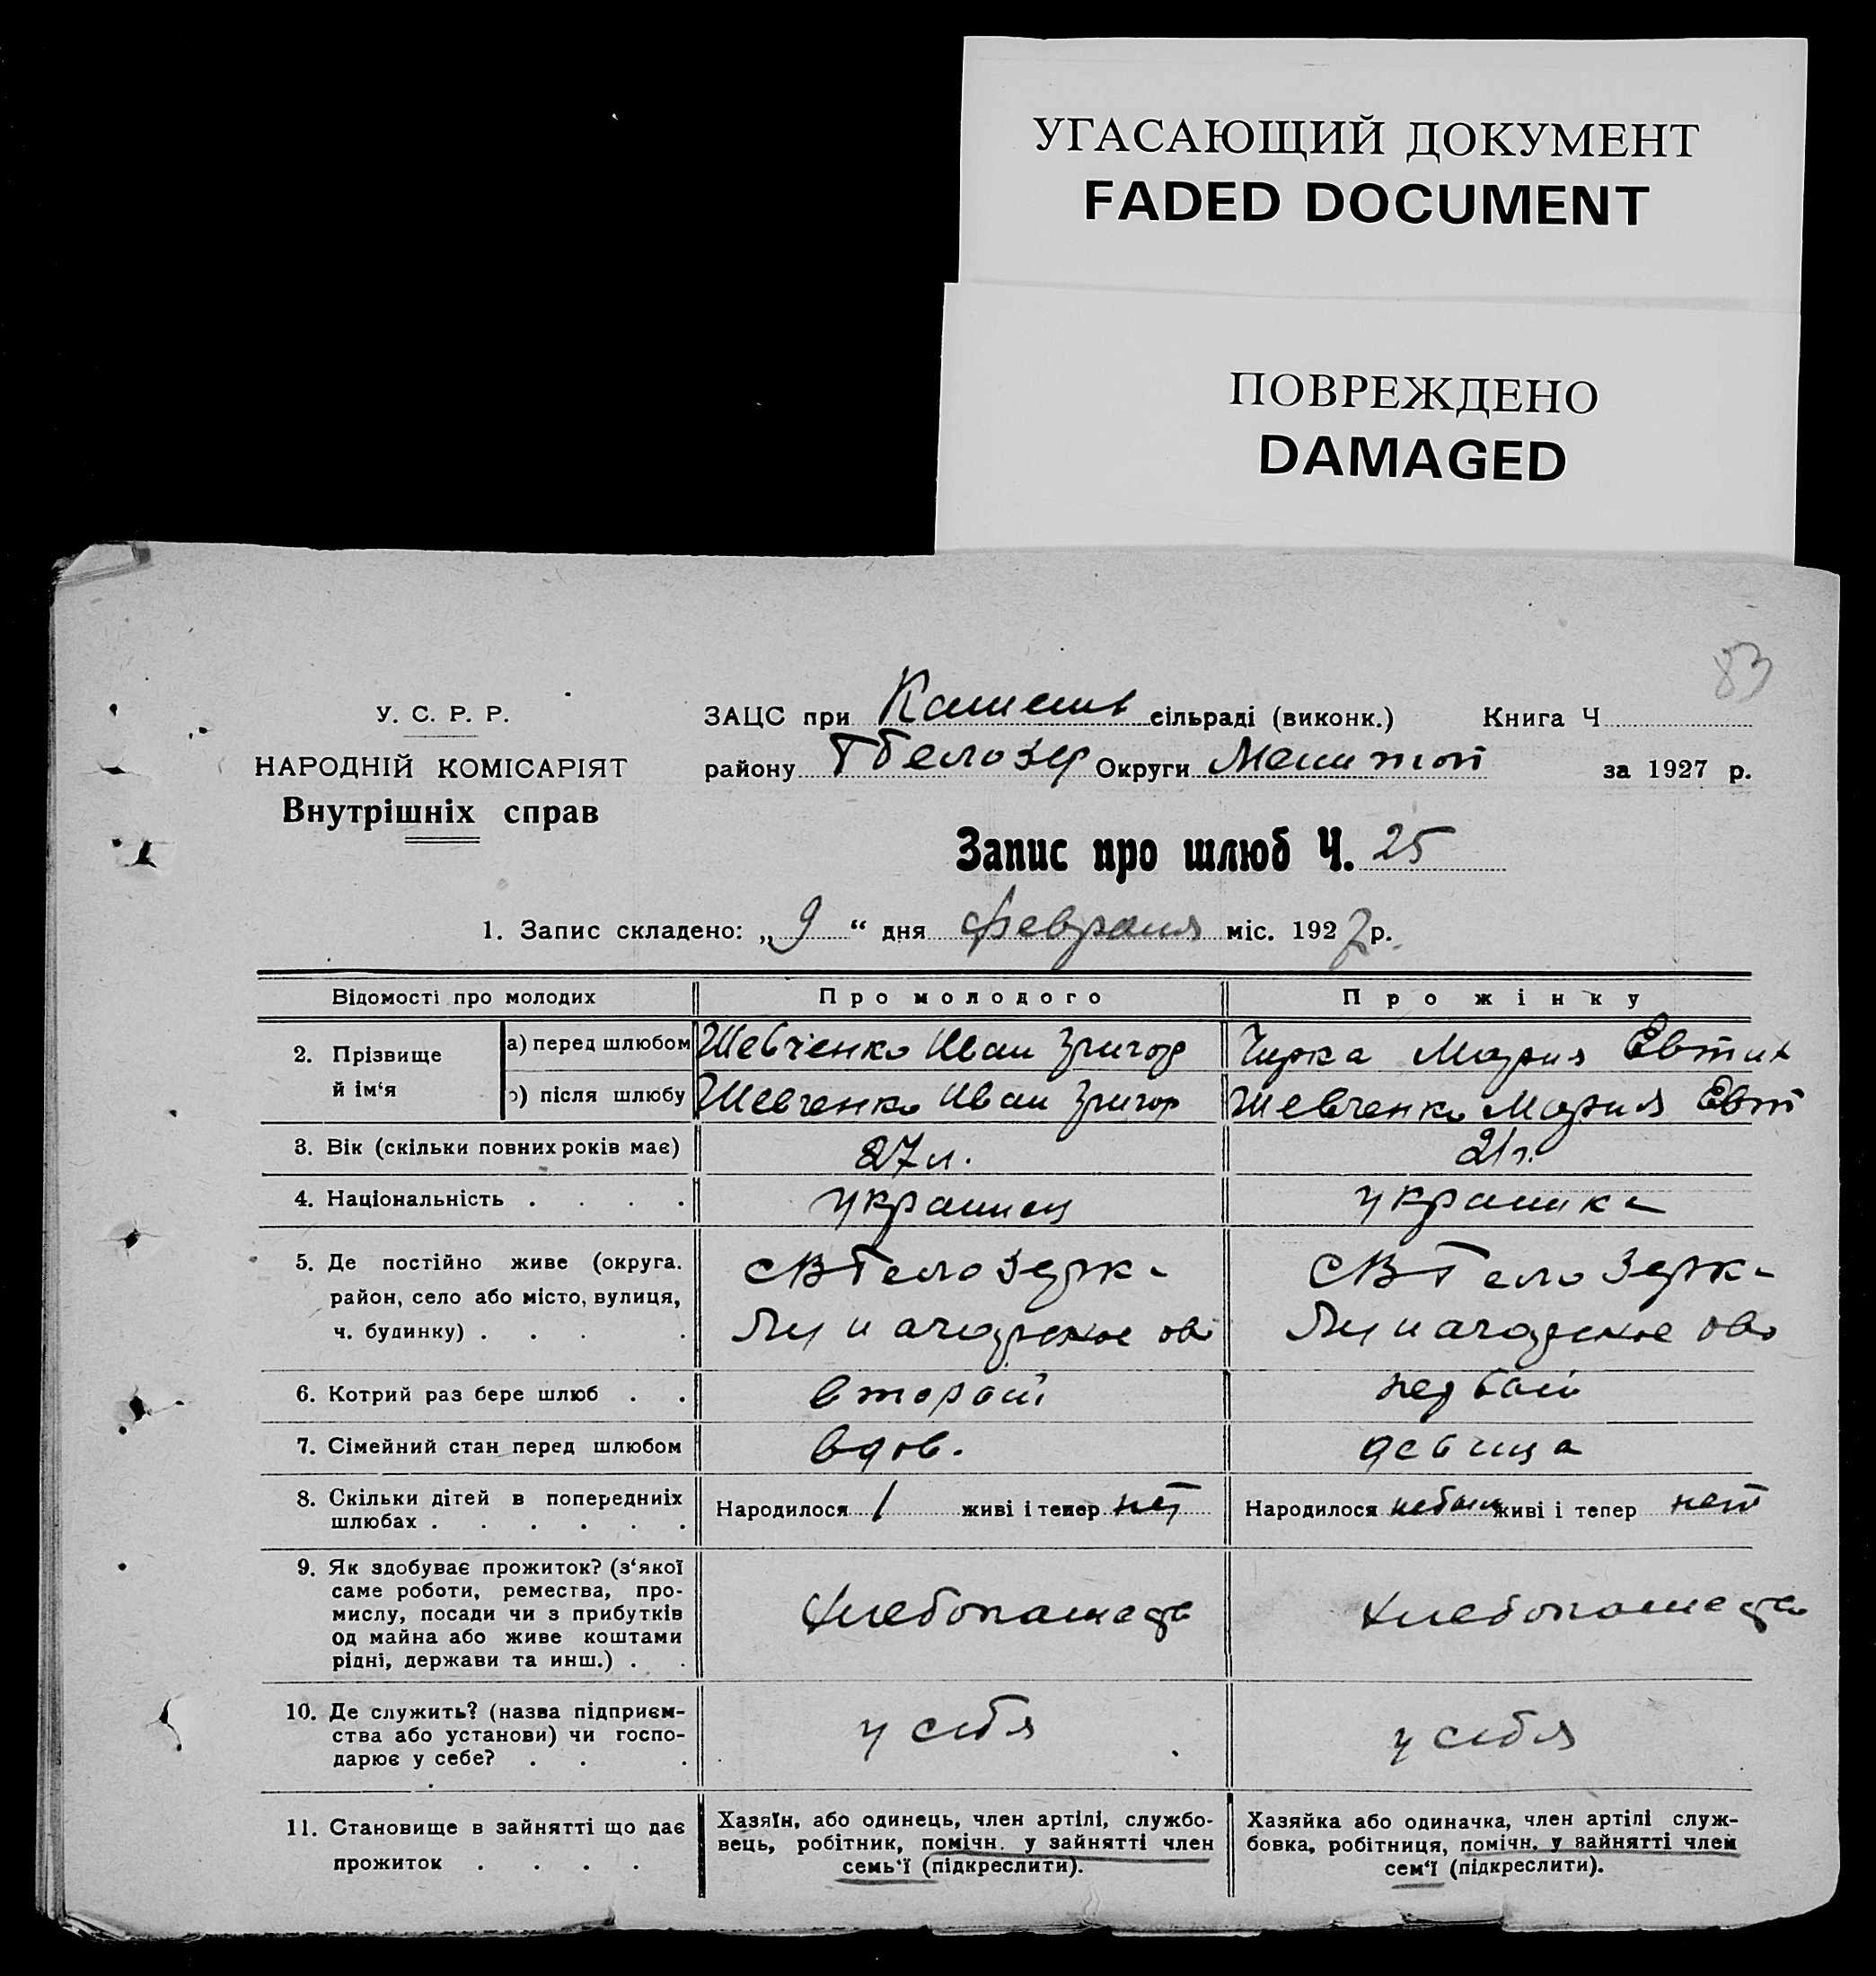 УГАСАЮЩИЙ ДОКУМЕНТ
FADED DOCUMENT
ПОВРЕЖДЕНО
DAMAGED
83
У. С. Р. Р.
НАРОДНІЙ КОМІСАРІЯТ
Внутрішніх справ
ЗАЦС при сільраді (виконк.) Книга Ч
району Округи за 1927 р.
Запис про шлюб Ч. 25
1. Запис складено: „9“ дня февраля міс. 1927 р.
Відомості про молодих Про молодого Про жінку
2. Прізвище й ім‘я
а) перед шлюбом Шевченко Иван Григор Чирка Мария Евтих
б) після шлюбу Шевченко Иван Григор Шевченко Мария Евт
3. Вік (скільки повних років має) 27 л. 21 г.
4. Національність . . . . украинец украинка
5. Де постійно живе (округа. район, село або місто, вулиця, ч. будинку) . . . .
6. Котрий раз бере шлюб . . второй первый
7. Сімейний стан перед шлюбом вдов. девица
8. Скільки дітей в попередниіх шлюбах . . . . . . Народилося 1 живі і тепер нет Народилося небыли живі і тепер нет
9. Як здобуває прожиток? (з‘якої
саме роботи, ремества, про-
мислу, посади чи з прибутків
од майна або живе коштами
рідні, держави та инш.) . .
10. Де служить? (назва підприєм-
ства або установи) чи госпо-
дарює у себе? . . . у себя у себя
11. Становище в зайнятті що дає
прожиток . . . .
Хазяїн, або одинець, член артілі, службо-
вець, робітник, помічн. у зайнятті член
семь‘ї (підкреслити).
Хазяйка або одиначка, член артілі служ-
бовка, робітниця, помічн. у зайнятті член
сем‘ї (підкреслити).